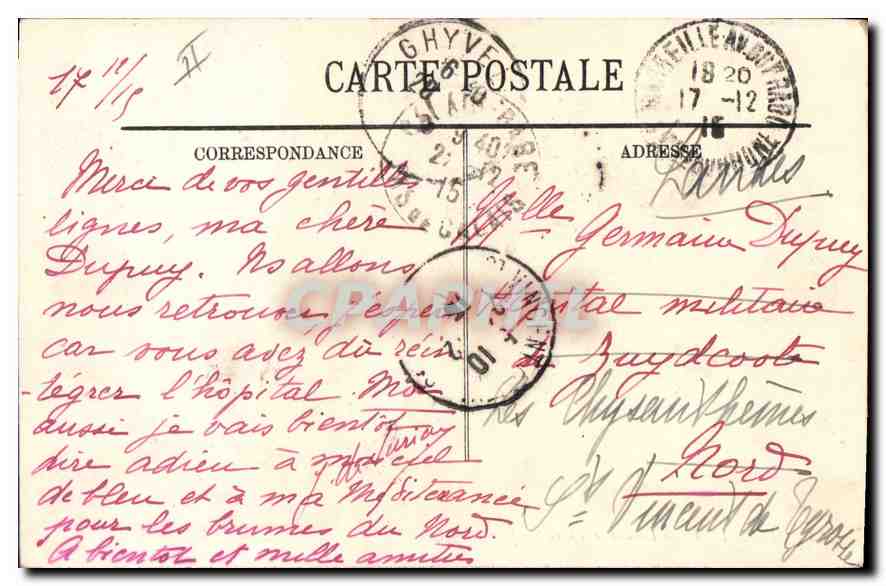 CARTE POSTALE
CORRESPONDANCE
17 12/15
II
Merci de vos gentilles
lignes, ma chère
Dupuy. Ns allons
nous retrouver j'espère
car vous avez dû réin
-tégrer l'hôpital Moi
aussi je vais bientôt
dire adieu à mon ciel
de bleu et à ma Méditerranée
pour les brumes du Nord.
A bientôt et mille amitiés
ADRESSE
Landes
Mlle
Germaine Dupuy
Hôpital militaire
de Zuydcoote
Les Chrysanthèmes
Nord
St Vincent de Tyrosse
GHYVELDE
PAS DE CALAIS
9 40
21 12
15
18 20
17 -12
15
CPARAMA